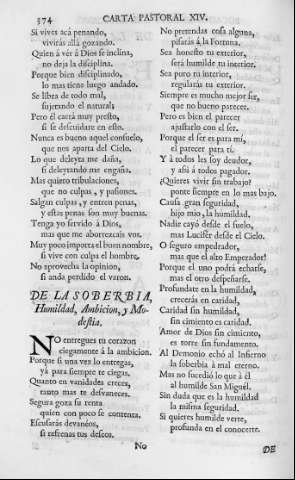 374
CARTA PASTORAL XIV.
Si vives acá penando,
vivirás allá gozando.
Quien à vér à Dios se inclina,
no deja la disciplina.
Porque bien disciplinado,
lo mas tiene luego andado.
Se libra de todo mal,
sujetando el natural;
Pero él caerá muy presto,
si se descuidare en esto.
Nunca es bueno aquel consuelo,
que nos aparta del Cielo.
Lo que deleyta me daña,
si deleytando me engaña.
Mas quiero tribulaciones,
que no culpas, y pasiones.
Salgan culpas, y entren penas,
y estas penas son muy buenas.
Tenga yo servido à Dios,
mas que me aborrezcais vos.
Muy poco importa el buen nombre,
si vive con culpa el hombre.
No aprovecha la opinion,
si anda perdido el varon.
DE LA SOBERBIA,
Humildad, Ambicion, y Mo-
destia.
NO entregues tu corazon
ciegamente à la ambicion.
Porque si una vez lo entregas,
yá para siempre te ciegas.
Quanto en vanidades creces,
tanto mas te desvaneces.
Segura goza su renta
quien con poco se contenta.
Escusarás devanéos,
si refrenas tus deseos.
No pretendas cosa alguna,
pisarás á la Fortuna.
Sea honesto tu exterior,
será tambien tu interior.
Sea puro tu interior,
regularás tu exterior.
Siempre es mucho mejor ser,
que no bueno parecer.
Pero es bien el parecer
ajustarlo con el ser.
Porque el ser es para mí,
el parecer para tí.
Y à todos les soy deudor,
y asi á todos pagador.
¿Quieres vivir sin trabajo?
ponte siempre en lo mas bajo.
Causa gran seguridad,
hijo mio, la humildad.
Nadie cayó desde el suelo,
mas Lucifér desde el Cielo.
O seguro empedrador,
mas que el alto Emperador!
Porque el uno podrá echarse,
mas el otro despeñarse.
Profundate en la humildad,
crecerás en caridad.
Caridad sin humildad,
sin cimiento es caridad.
Amor de Dios sin cimiento,
es torre sin fundamento.
Al Demonio echó al Infierno
la soberbia à mal eterno.
Mas no sucedió lo que à él
al humilde San Miguél.
Sin duda que es la humildad
la misma seguridad.
Si quieres humilde verte,
profunda en el conocerte.
No
DE